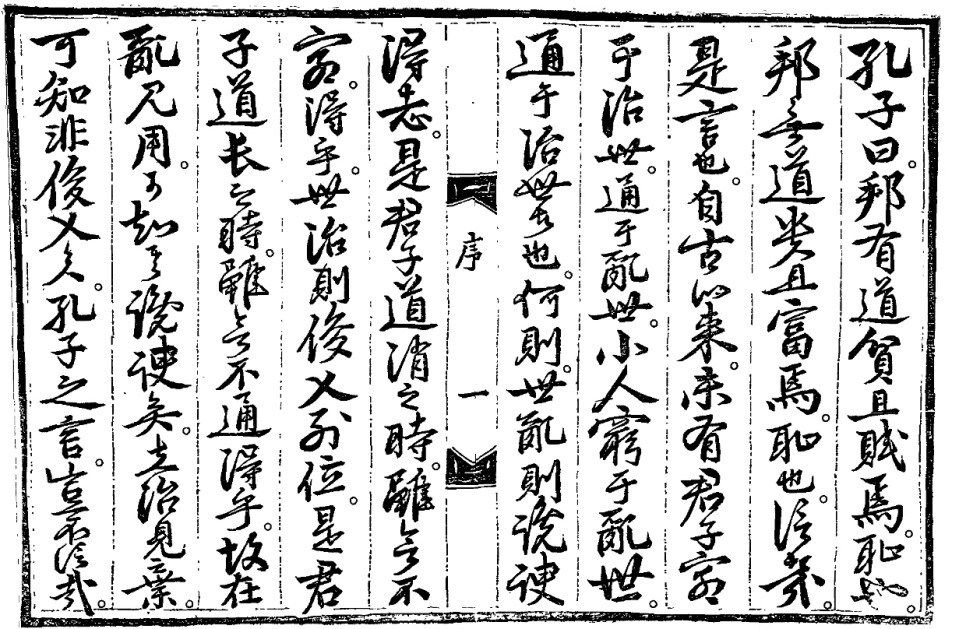 孔子曰。邦有道貧且賤焉。恥也。
邦無道貴且富焉。恥也。信哉。
是言也。自古以来。未有君子窮
于治世。通于亂世。小人窮于亂世。
通于治世者也。何則。世亂則讒諛
序 一
得志。是君子道消之時。雖欲不
窮。得乎。世治則俊乂列位。是君
子道長之時。雖欲不通得乎。故在
亂見用。可知其讒諛矣。在治見棄。
可知非俊乂矣。孔子之言。豈不信哉。